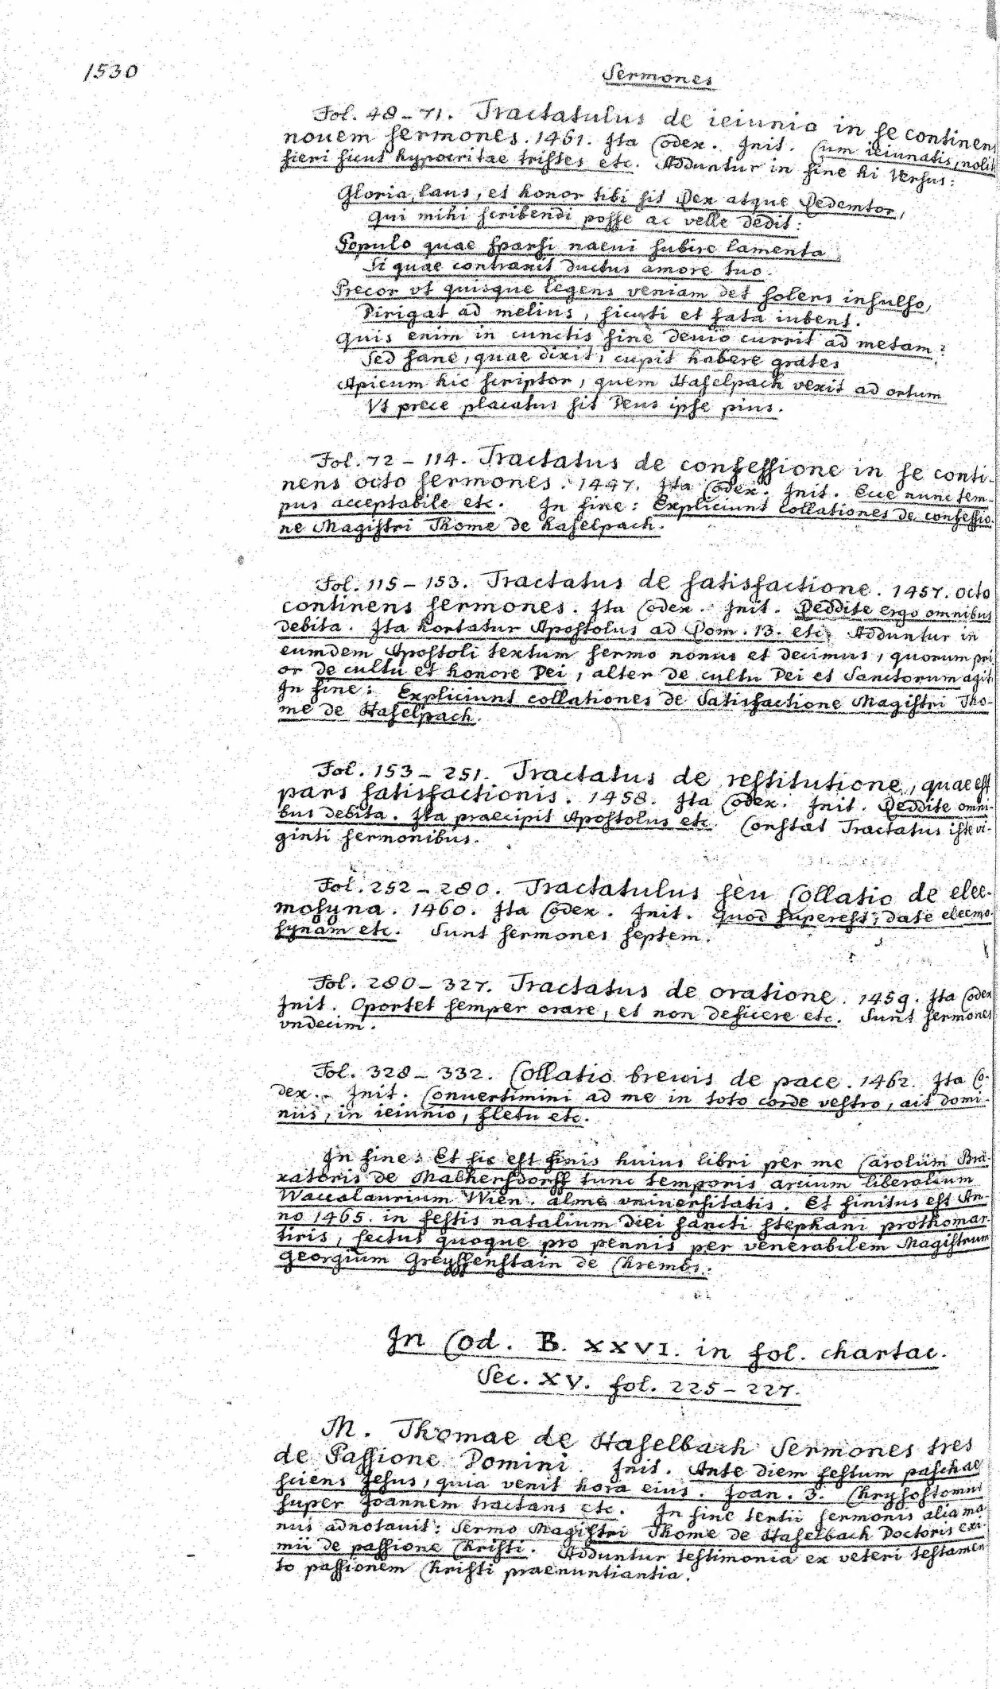 1530
Sermones
Fol. 48 – 71. Tractatulus de ieiunio in se continen
nouem sermones. 1461. Ita Codex. Init. Cum ieiunatis, nolit
fieri sicut hypocritae tristes etc. Adduntur in fine hi Versus:
Gloria, laus, et honor tibi sit Rex atque Redemtor,
Qui mihi scribendi posse ac velle dedit:
Populo quae sparsi naeui subire lamenta
Si quae contraxit ductus amore tuo.
Precor vt quisque legens veniam det solens insulso,
Dirigat ad melius, sicuti et fata iubent.
Quis enim in cunctis sine deuio currit ad metam?
Sed sane, quae dixit, cupit habere grates
Apicum hic scriptor, quem Haselpach vexit ad ortum
Vt prece placatus sit Deus ipse pius.
Fol. 72 – 114. Tractatus de confessione in se conti-
nens octo sermones. 1447. Ita Codex. Init. Ecce nunc tem-
pus acceptabile etc. In fine: Expliciunt collationes de confessio-
ne Magistri Thome de Haselpach.
Fol. 115 – 153. Tractatus de satisfactione. 1457. octo
continens sermones. Ita Codex. Init. Reddite ergo omnibus
debita. Ita hortatur Apostolus ad Rom. 13. etc. Adduntur in
eumdem Apostoli textum sermo nonus et decimus, quorum pri
or de cultu et honore Dei, alter de cultu Dei et Sanctorum agit
In fine: Expliciunt collationes de Satisfactione Magistri Tho-
me de Haselpach.
Fol. 153 – 251. Tractatus de restitutione, quae est
pars satisfactionis. 1458. Ita Codex. Init. Reddite omni-
bus debita. Ita praecipit Apostolus etc. Constat Tractatus iste vi-
ginti sermonibus.
Fol. 252 – 280. Tractatulus seu Collatio de elee-
mosyna. 1460. Ita Codex. Init. Quod superest, date eleemo-
synam etc. Sunt sermones septem.
Fol. 280 – 327. Tractatus de oratione. 1459. Ita Codex
Init. Oportet semper orare, et non deficere etc. Sunt sermones
vndecim.
Fol. 328 – 332. Collatio breuis de pace. 1462. Ita Co-
dex. Init. Conuertimini ad me in toto corde vestro, ait domi-
nus, in ieiunio, fletu etc.
In fine: Et sic est finis huius libri per me Carolum Bra-
xatoris de Malkersdorff tunc temporis arcium liberalium
Waccalaurium Wien. alme vniuersitatis. Et finitus est An-
no 1465. in festis natalium diei sancti stephani prothomar
tiris, fectus quoque pro pennis per venerabilem Magistrum
Georgium Greyssenstain de Chrembs.
In Cod. B. XXVI. in fol. chartac.
Sec. XV. fol. 225 – 227.
M. Thomae de Haselbach Sermones tres
de Passione Domini Init. Ante diem festum paschae
sciens Jesus, quia venit hora eius. Joan. 3. Chrysostomus
super Joannem tractans etc. In fine tertii sermonis alia ma
nus adnotauit: Sermo Magistri Thome de Haselbach Doctoris exi
mii de passione Christi. Adduntur testimonia ex veteri testamen
to passionem Christi praenuntiantia.